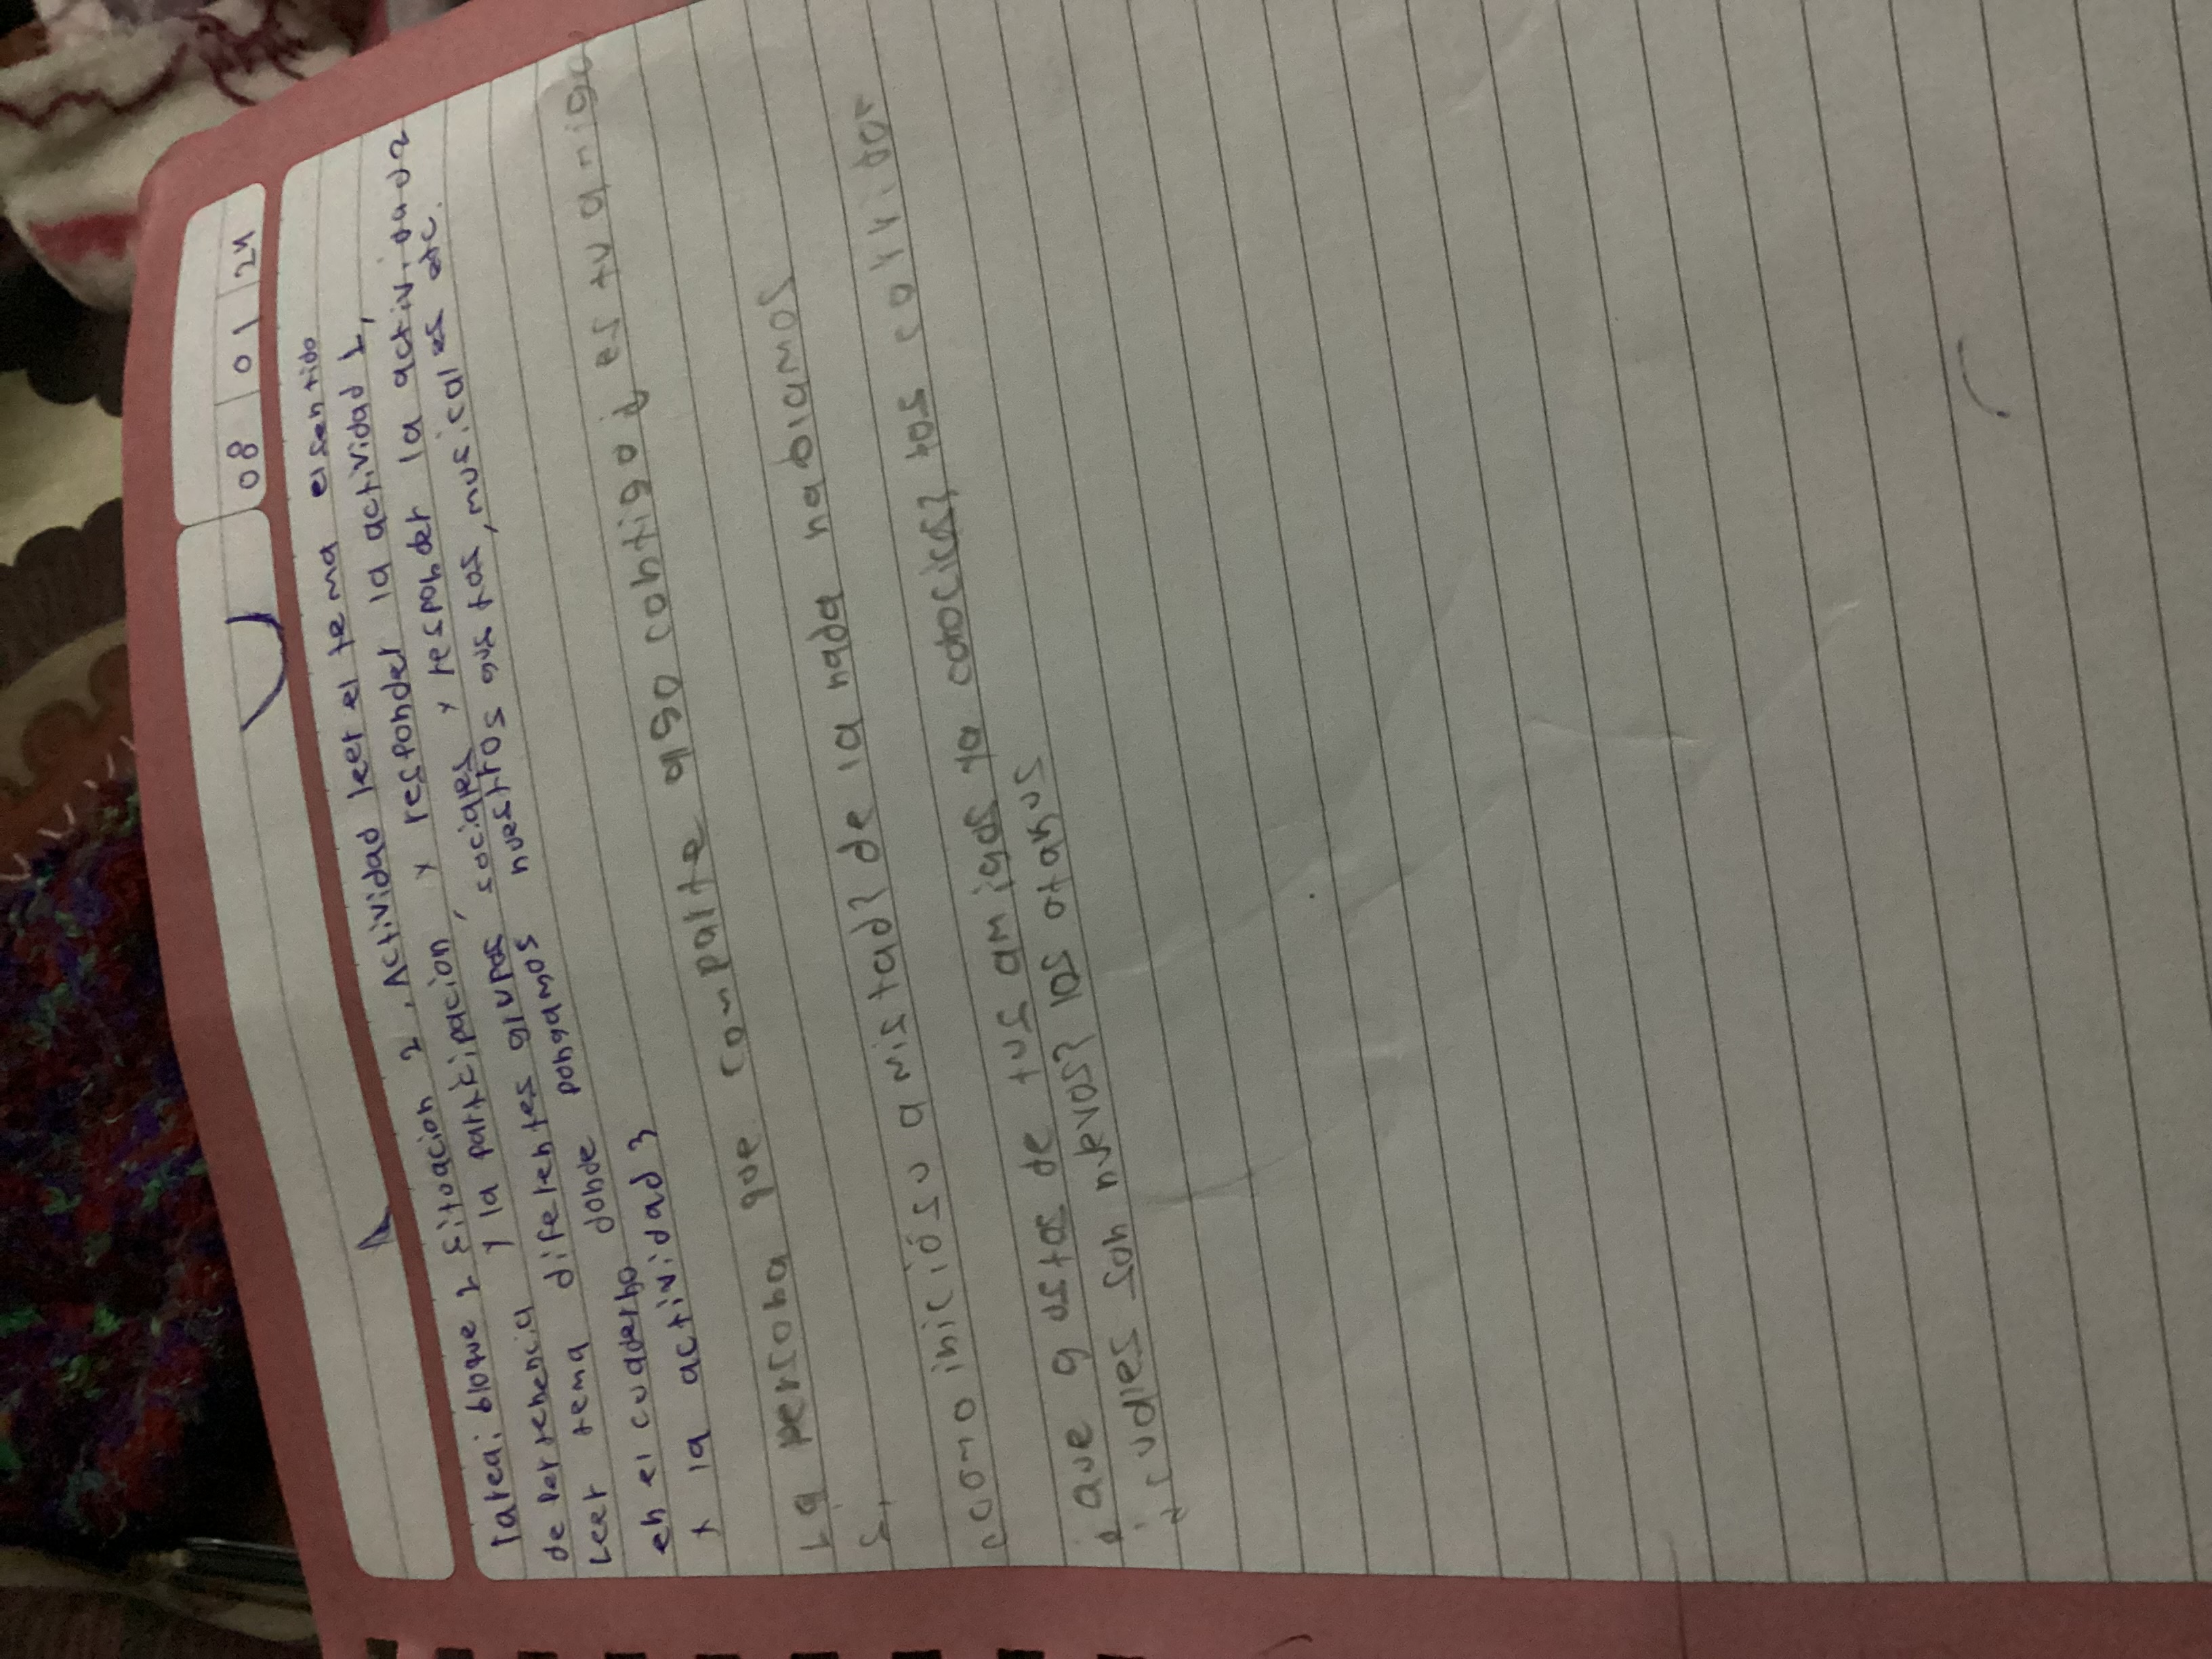 08 | 01 | 24
Tarea: bloque 2 situacion 2, Actividad leer el tema el sentido
de pertenencia y la participacion y responder la actividad 1,
Leer tema diferentes grupos sociales y responder la actividad 2
en el cuaderno donde pongamos nuestros gustos, musicales etc.
y la actividad 3
La persona que comparte algo contigo ¿es tu amigo
si
como inició su amistad? de la nada hablamos
¿que gustos de tus amigos ya conocias? los
¿cuales son nuevos? los otakus